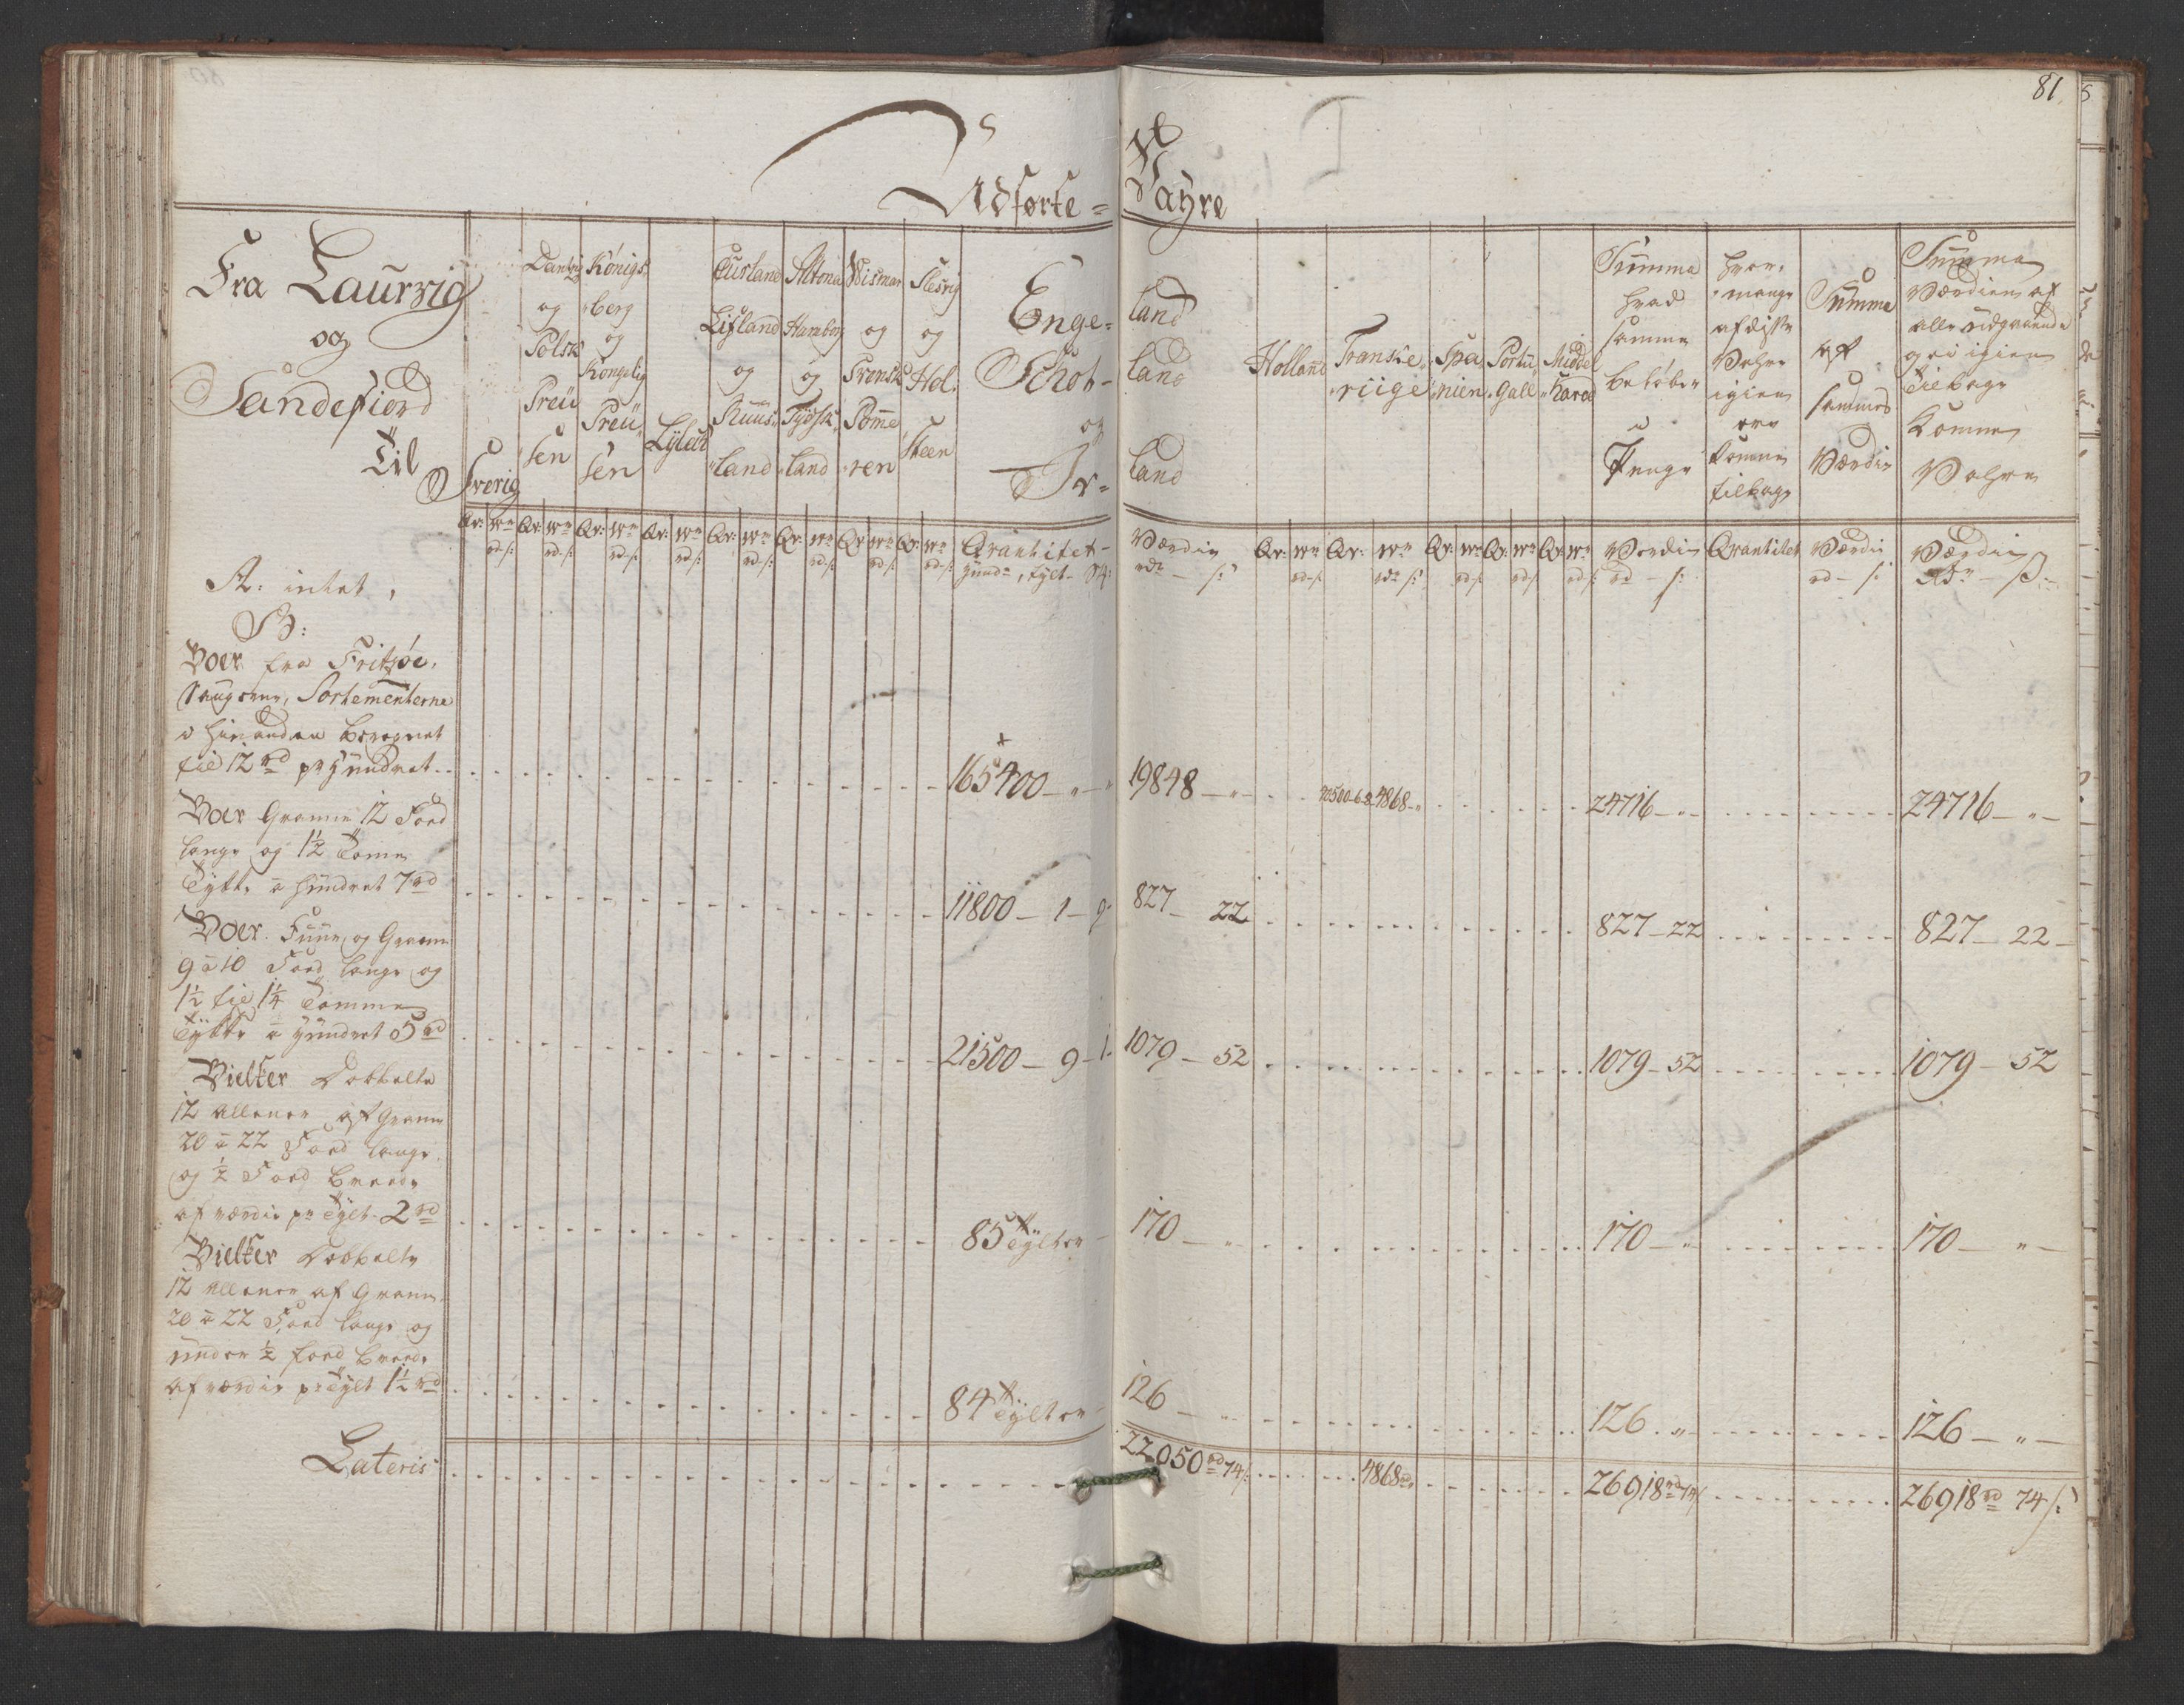 81
Udførte = Vahre
Fra Laurvig
og
Sandefiord
Til
Sverig
Dantzig og Polsk Preüsen
Königsberg og Kongelig Preüsen
Lybek
Curland Lifland og Ruusland
Altona Hamborg og Tydskland
Wismar og Svensk Pommeren
Slesvig og Holsteen
Engeland
Schotland
og
Irland
Holland
Franskeriige
Spanien
Portugall
Middel
Summa
hvad
samme
beløber
i
Penge
hvor
mange
af disse
Vahre
igien
ere
komne
tilbage
Summa
af
sammes
Værdie
Summa
Værdien af
alle udgaaende
og ei igien
tilbage
Komne
Vahre
Qvantitet
hund., Tylt
Værdie
rdr - s:
Qv: Wr
rd - s:
Værdie
rd - s:
Qvantitet
Værdie
rd - s:
Værdie
Rdr - ß:
A: intet,
B:
Boer fra Fritzøe
Saugerne, Sortementerne
i hinanden beregnet
til 12 rd pr Hundret 165400 - " - " 19848 - " 40500-6-8 4868 - " 24716 - " - 24716 - " -
Boer Granne 12 Foed
lange og 1½ Tomme
Tykke a Hundret 7 rd 11800 - 1 - 9 827 - 22 827 - 22 827 - 22 -
Boer Fuure og Granne
9 a 10 Foed lange og
1½ til 1¼ Tomme
Tykke a Hundret 5 rd 21500 - 9 - 1 1079 - 52 1079 - 52 1079 - 52
Bielker Dobbelte
12 Allener af Granne
20 a 22 Foed lange
og ½ Foed Breede
af værdie pr Tylt 2 rd 85 Tylter - 170 - " 170 - " 170 - " -
Bielker Dobbelte
12 Allener af Granne
20 a 22 Foed lange og
under ½ foed Breede
af værdie pr Tylt 1½ rd 84 Tylter - 126 - " 126 - " 126 - " -
Lateris 22050 rd 74 s: 4868 rd " 26918 rd 74 s 26918 rd 74 s: